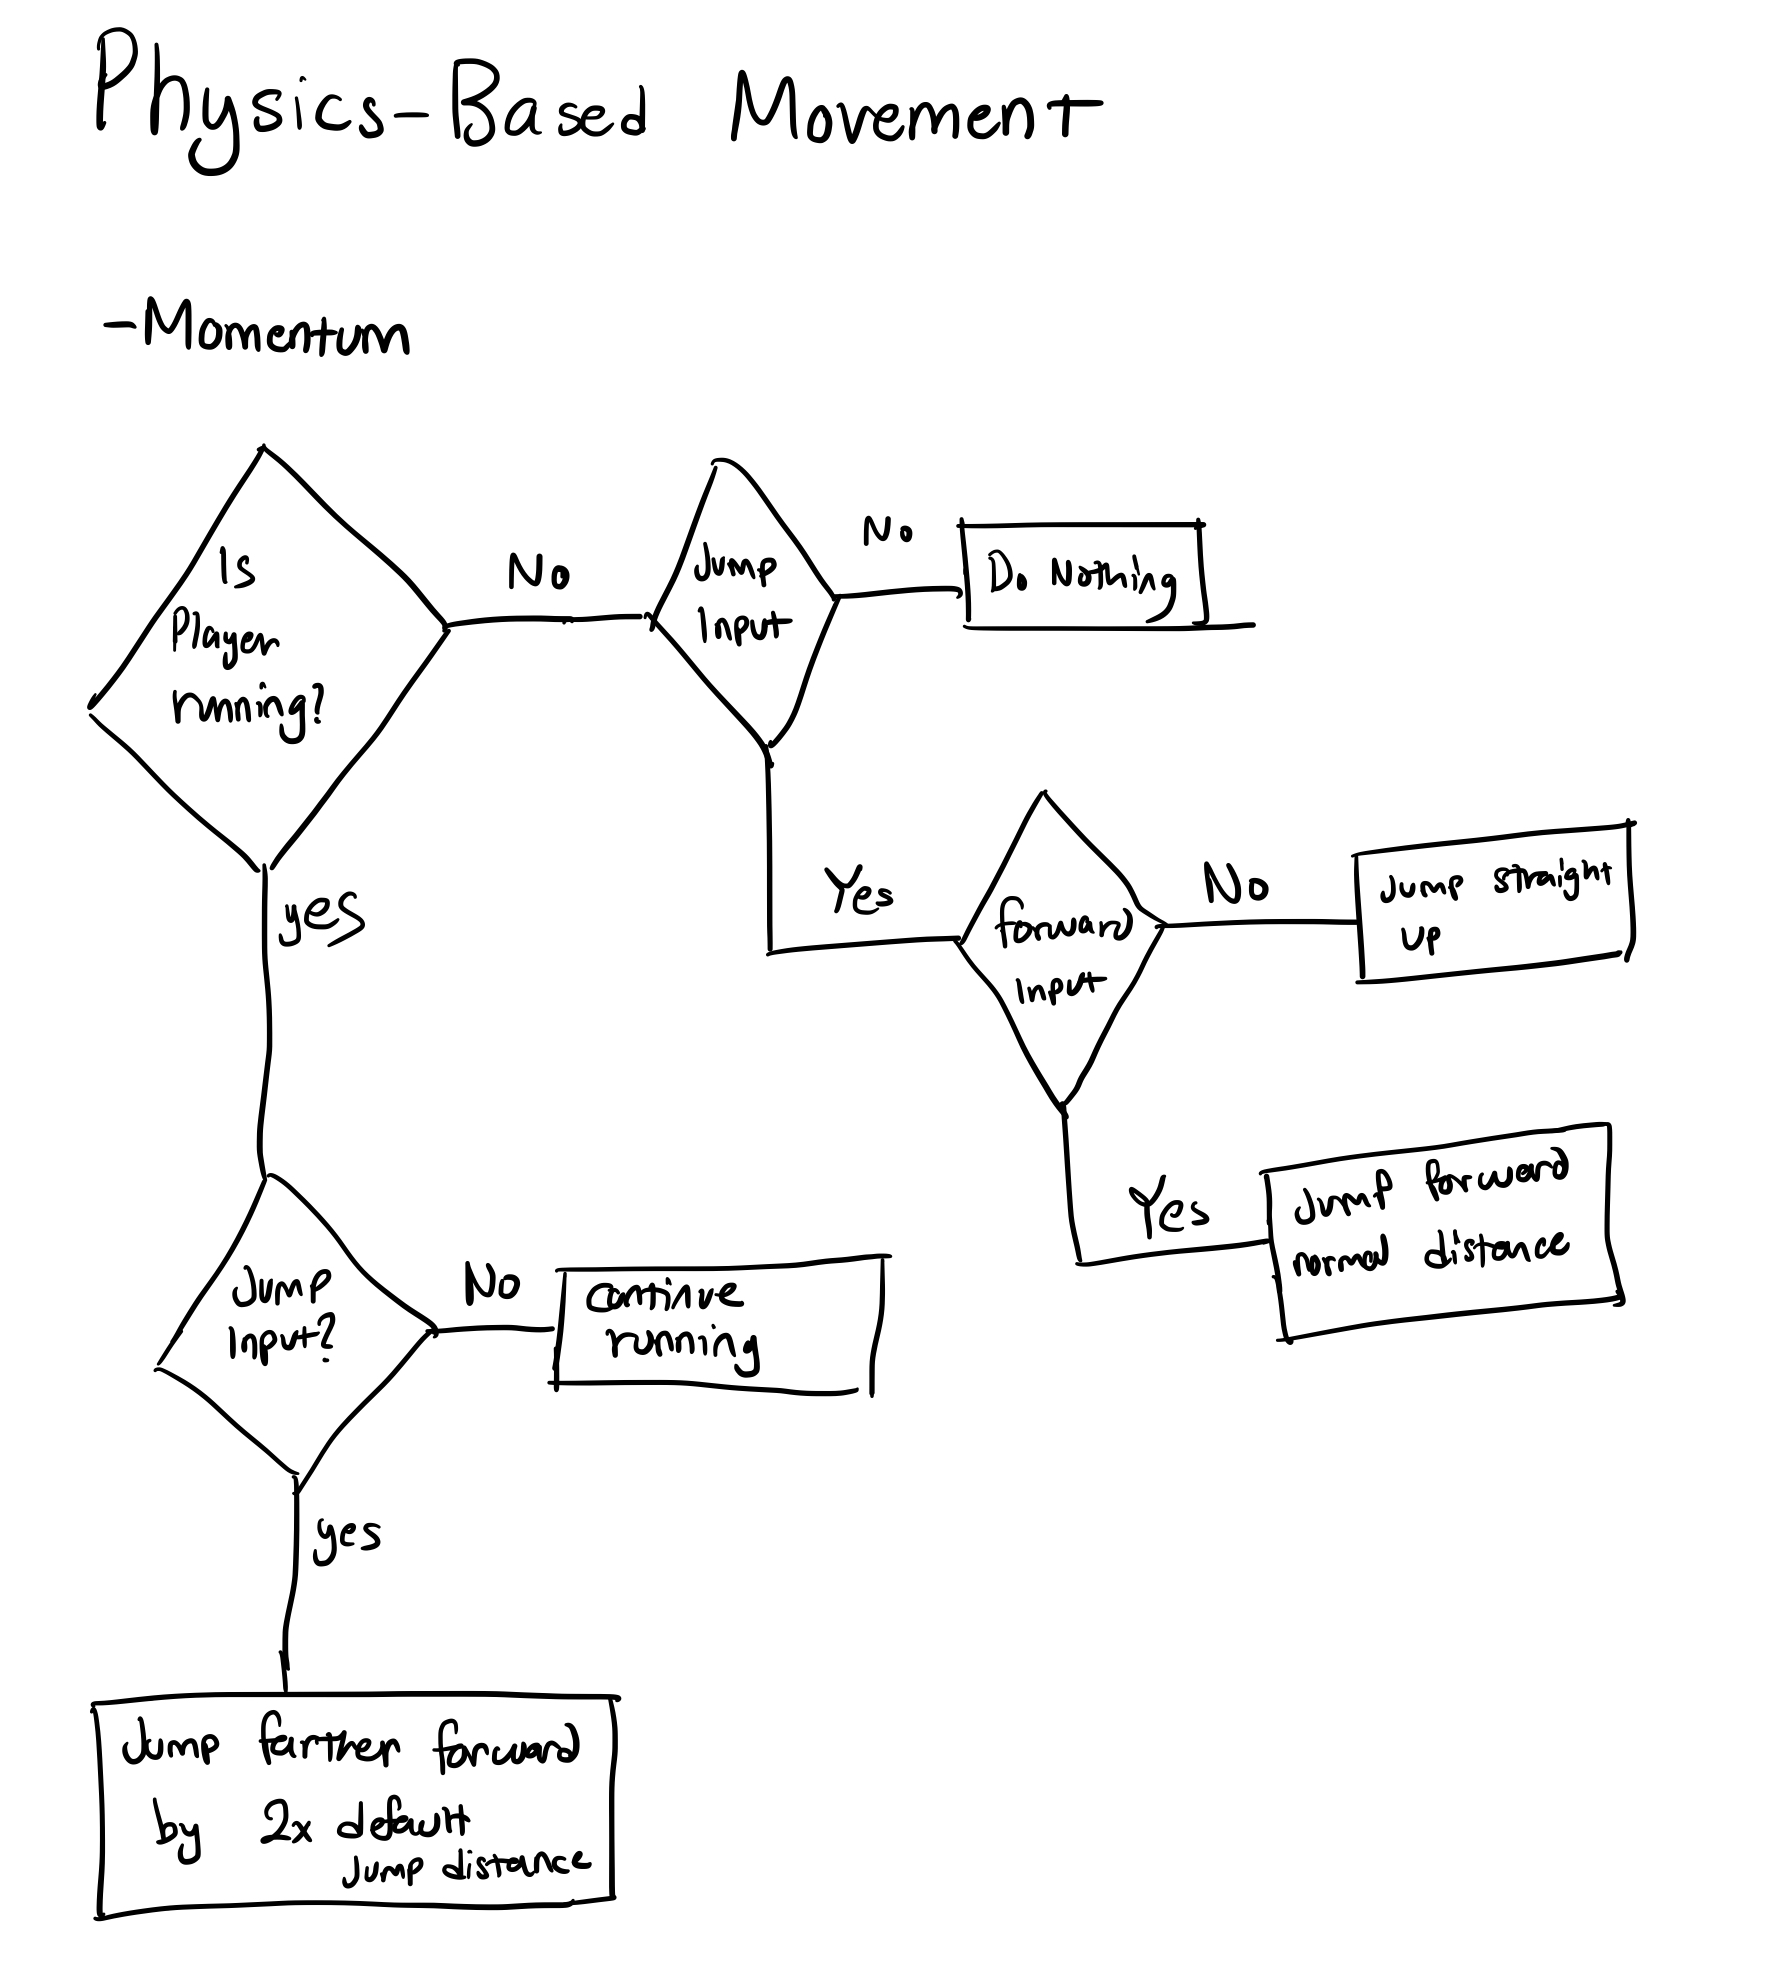 Physics-Based Movement
-Momentum
Is
Player
running?
No
Jump
Input
No
Do Nothing
yes
Yes
forward
Input
No
Jump straight
up
Yes
Jump forward
normal distance
Jump
Input?
No
continue
running
yes
Jump farther forward
by 2x default
Jump distance